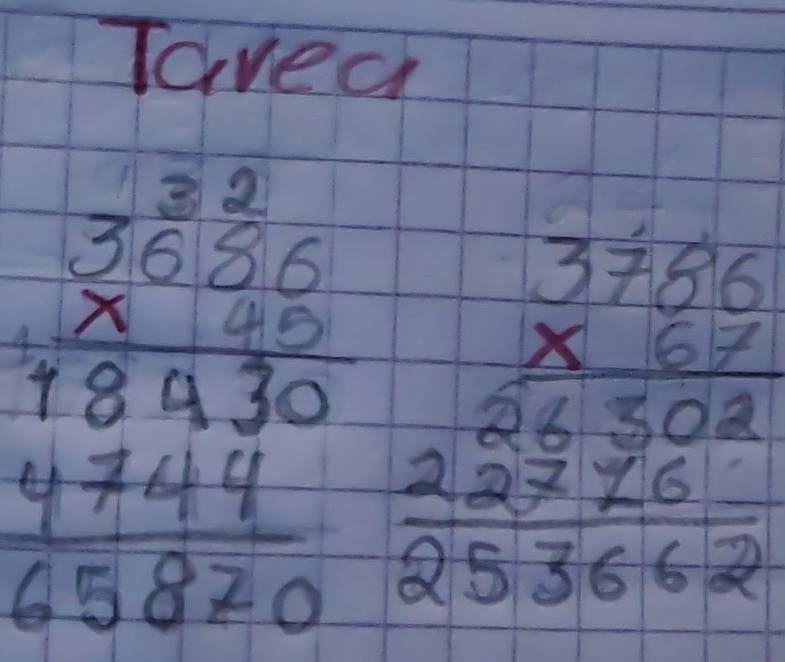 Tarea
3 2
3686
x 45
18430
4744
65870
3786
x 67
26302
22716
253662